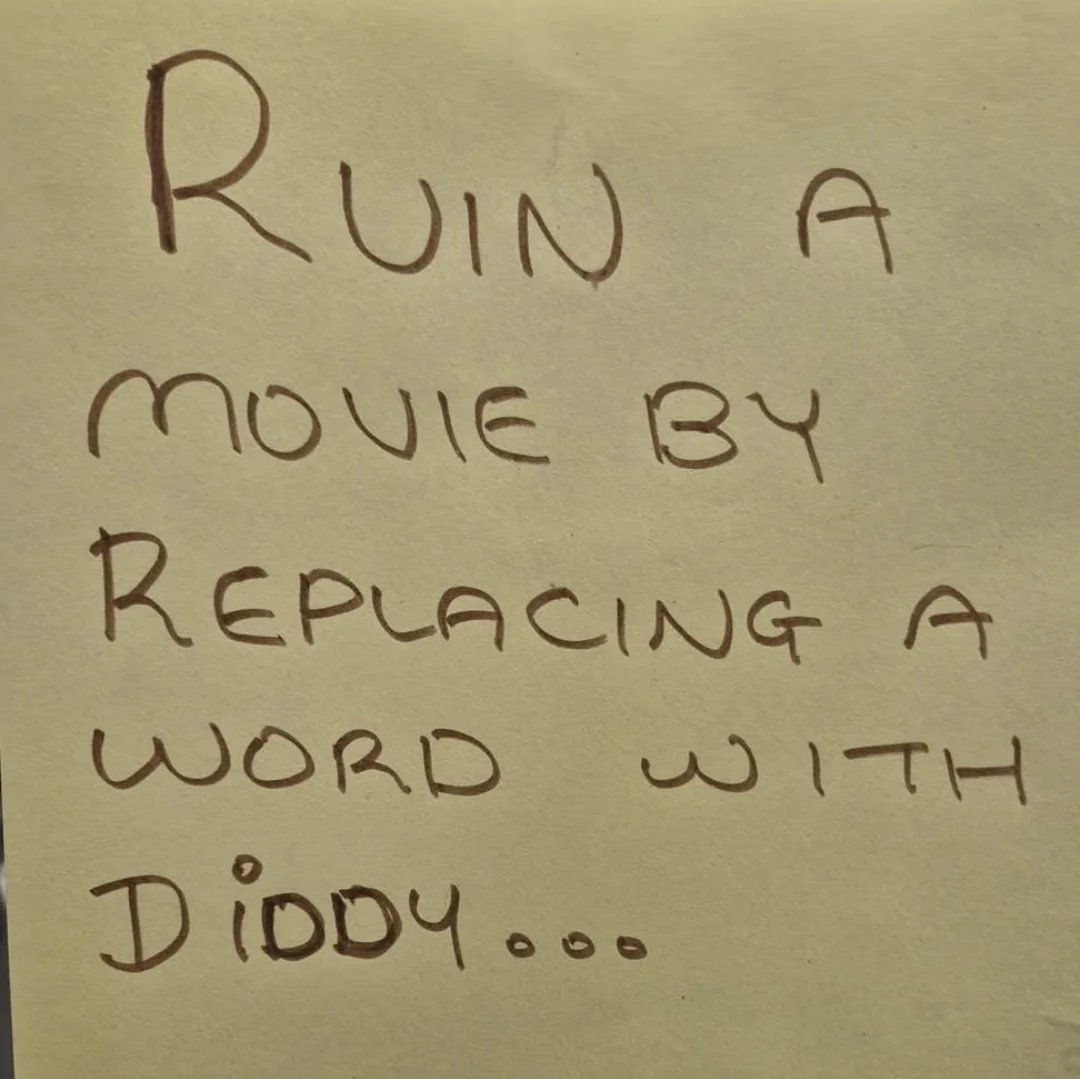 RUIN A
MOVIE BY
REPLACING A
WORD WITH
DiDDY...